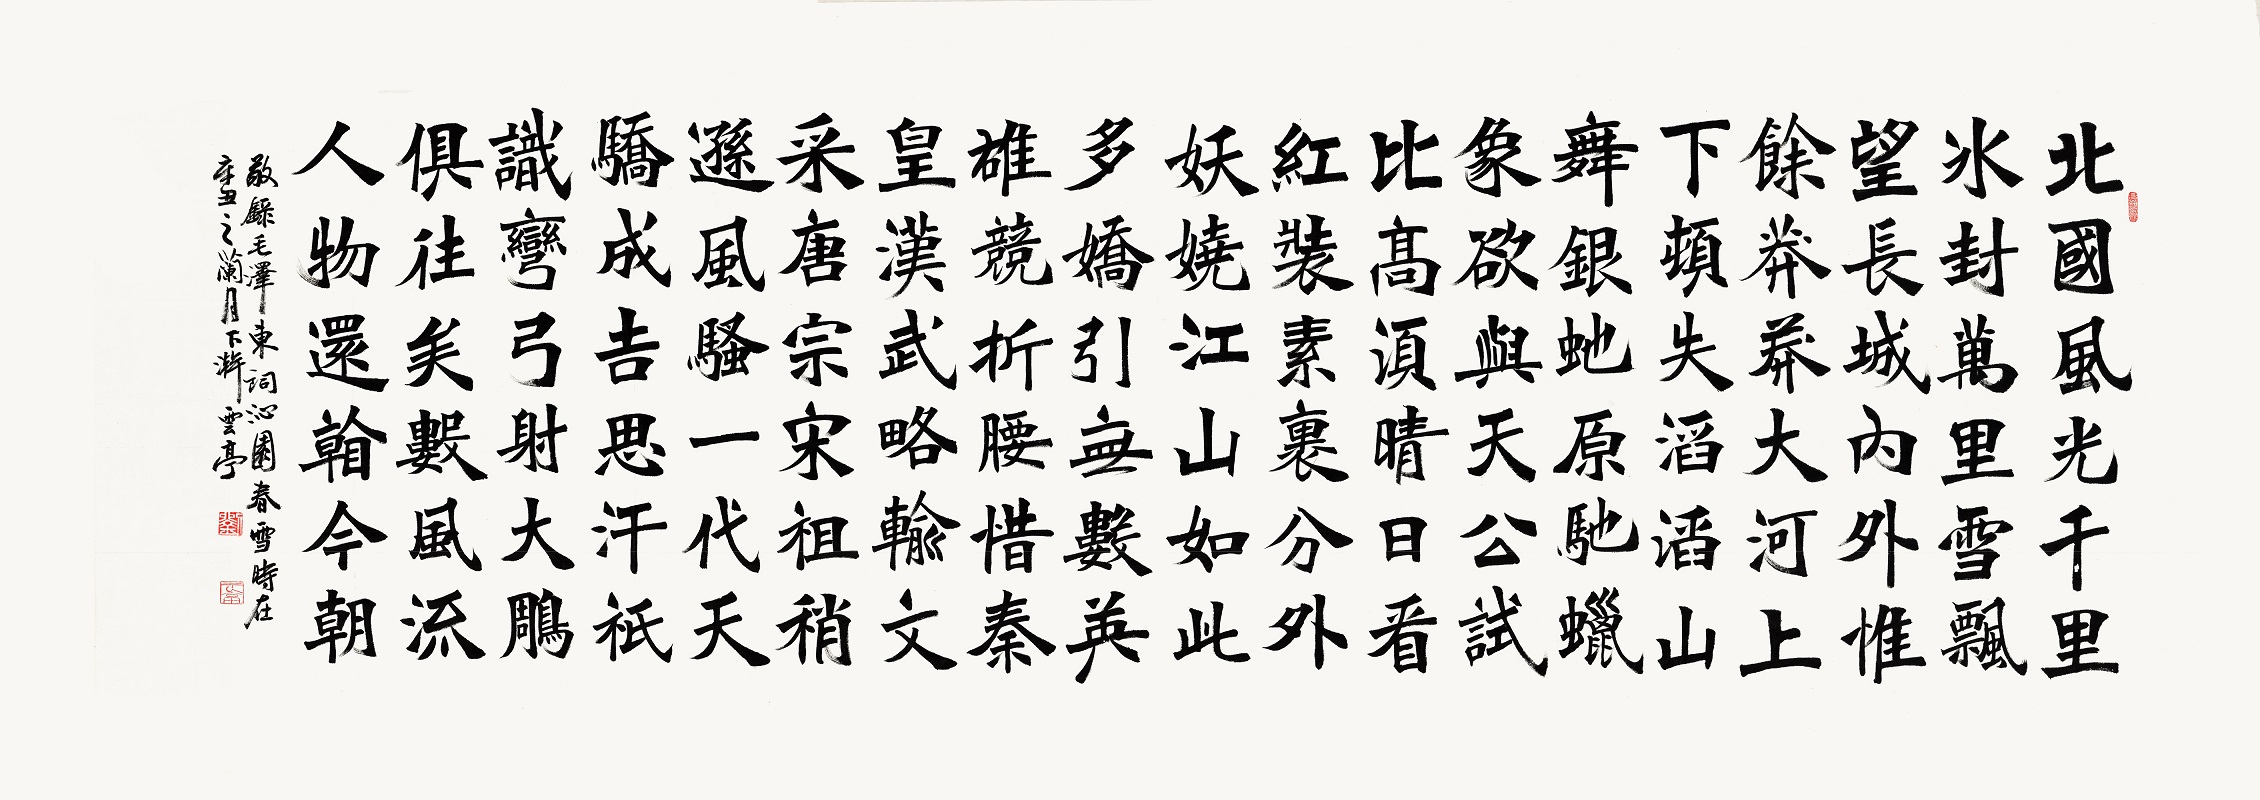 北國風光千里
氷封萬里雪飄
望長城內外惟
餘莽莽大河上
下頓失滔滔山
舞銀虵原馳蠟
象欲與天公試
比髙湏晴日看
紅裝素裹分外
妖嬈江山如此
多嬌引無數英
雄競折腰惜秦
皇漢武略輸文
采唐宗宋祖稍
遜風騷一代天
驕成吉思汗祇
識彎弓射大鵰
俱往矣數風流
人物還看今朝
敬錄毛澤東詞沁園春雪時在
辛丑之蘭月下澣雲亭